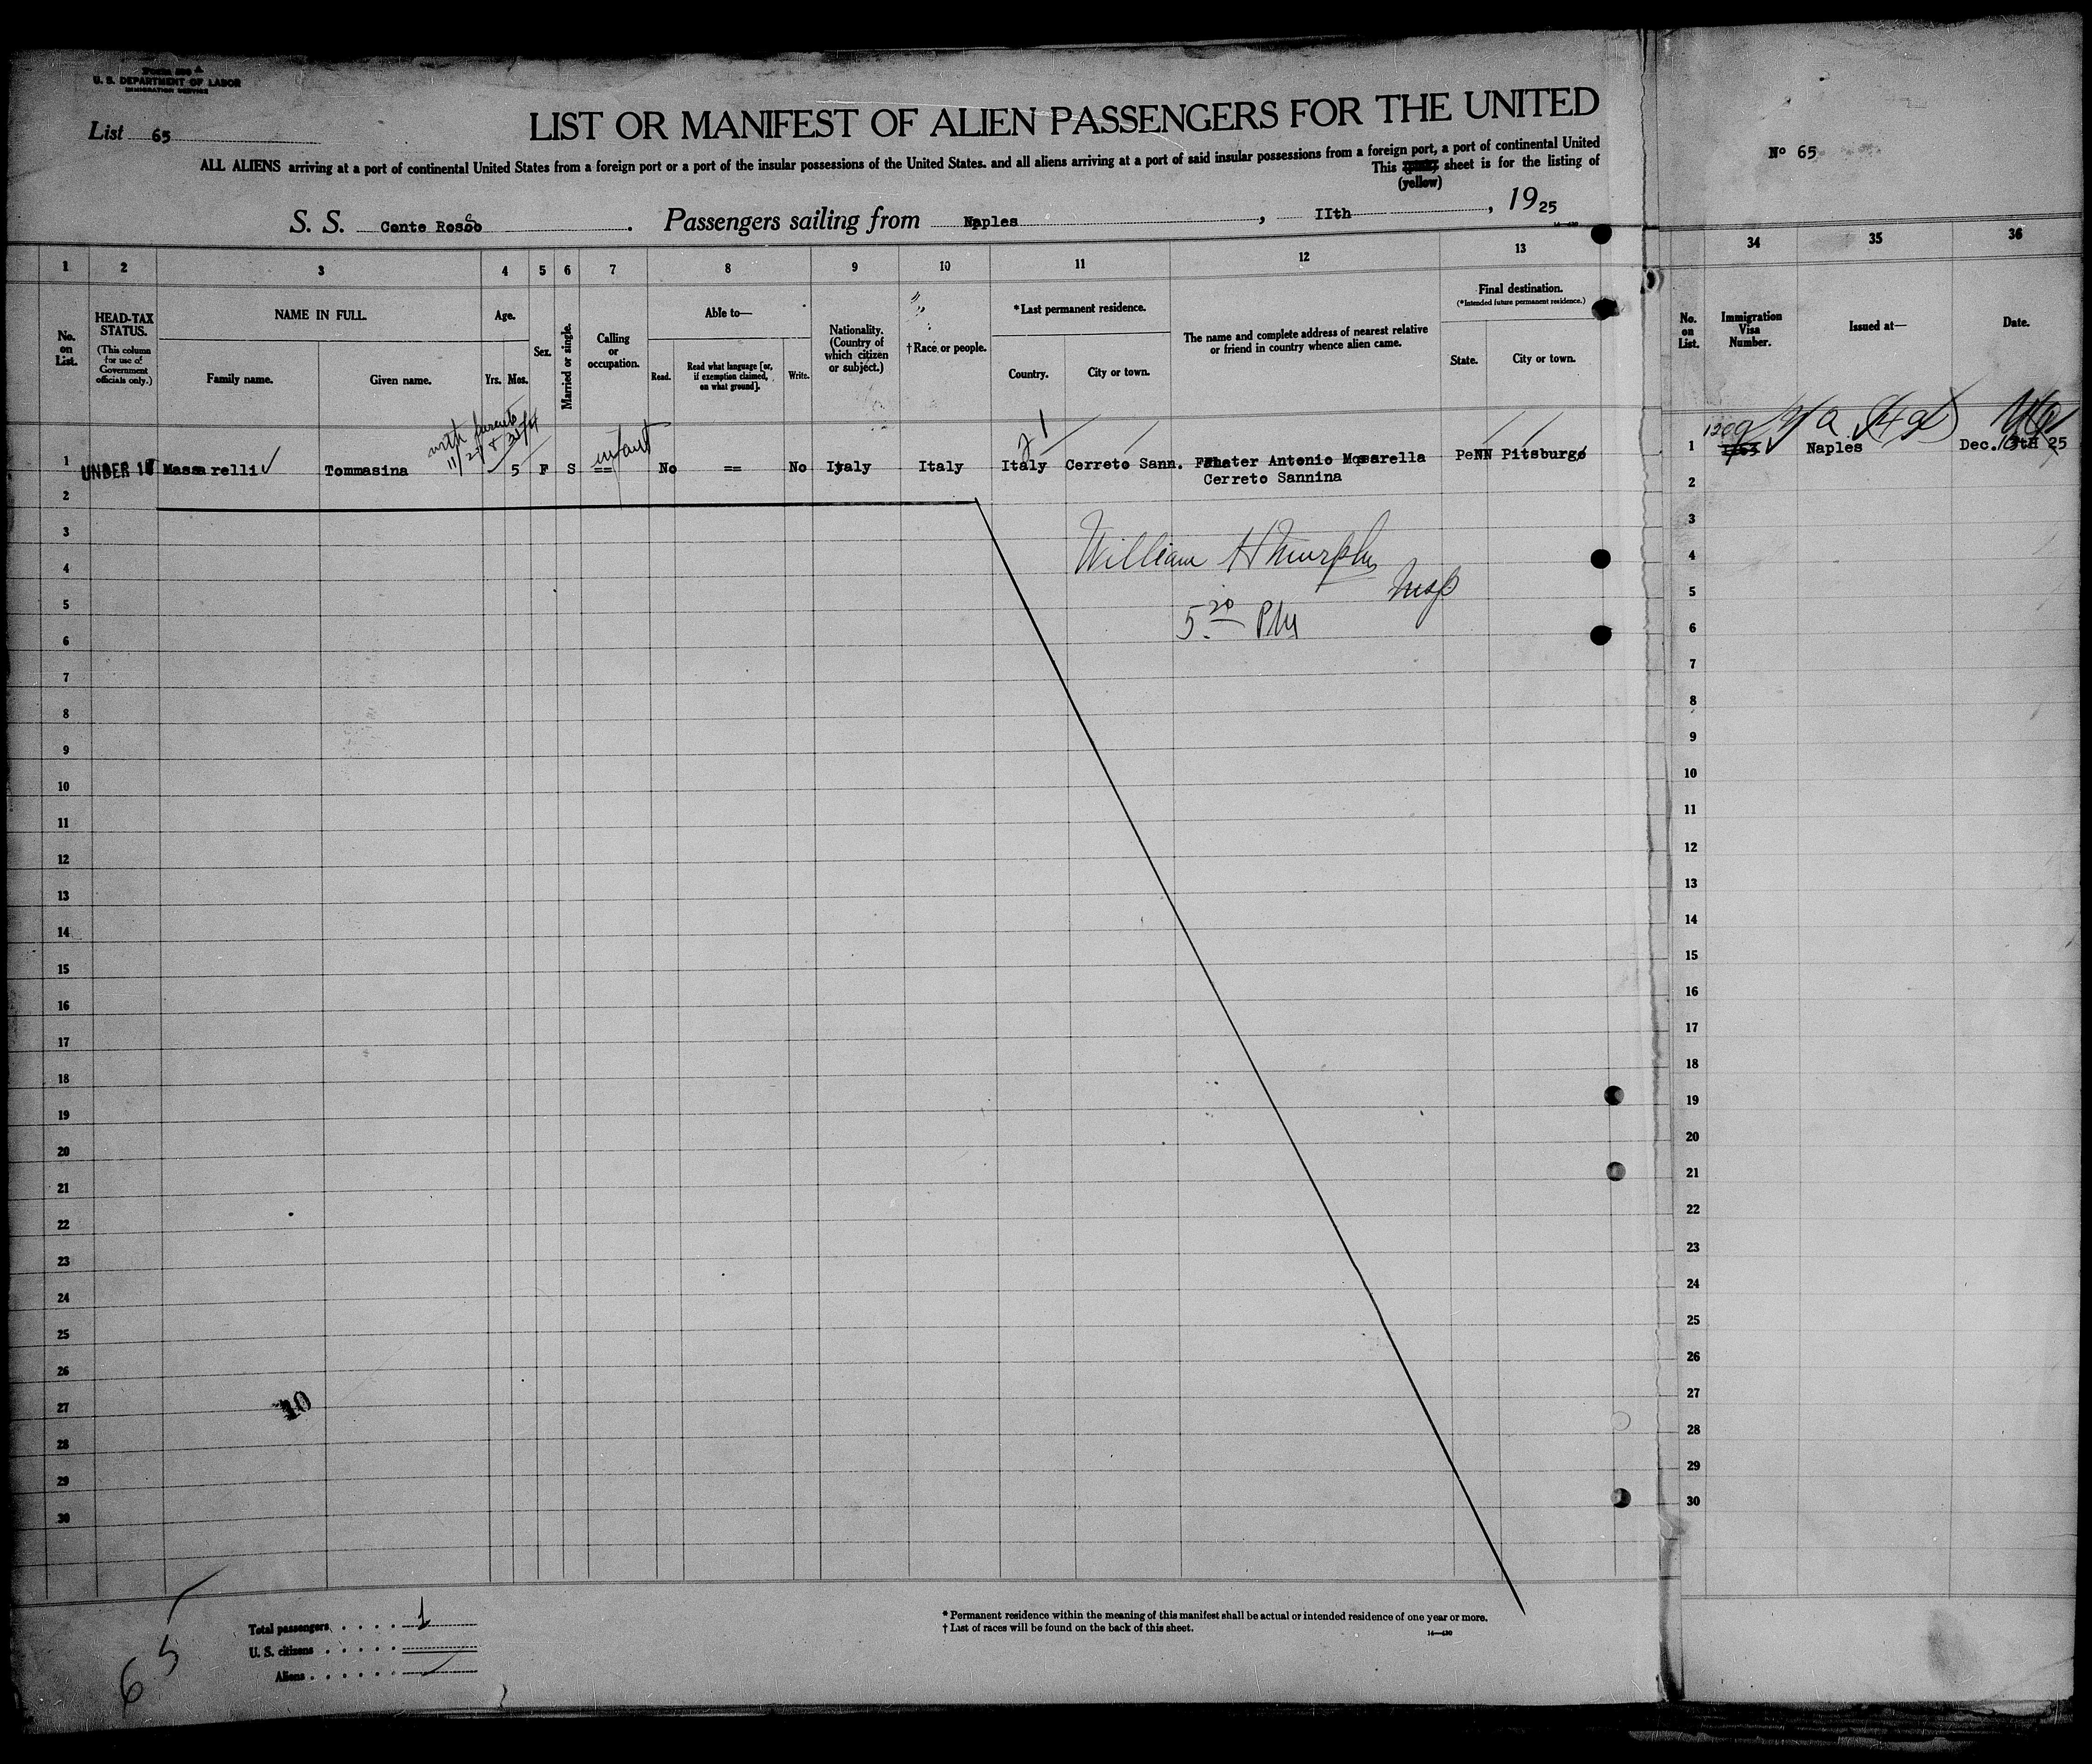 U. S. DEPARTMENT OF LABOR
IMMIGRATION SERVICE
List 65
LIST OR MANIFEST OF ALIEN PASSENGERS FOR THE UNITED
Nº 65
ALL ALIENS arriving at a port of continental United States from a foreign port or a port of the insular possessions of the United States, and all aliens arriving at a port of said insular possessions from a foreign port, a port of continental United
This sheet is for the listing of
(yellow)
S. S. Conte Rosso . Passengers sailing from Naples , IIth , 1925
1 2 3 4 5 6 7 8 9 10 11 12 13 34 35 36
No. on List.
HEAD-TAX STATUS.
(This column for use of Government officials only.)
NAME IN FULL.
Family name.
Given name.
Age.
Yrs. Mos.
Sex.
Married or single.
Calling or occupation.
Able to—
Read.
Read what language [or, if exemption claimed, on what ground].
Write.
Nationality. (Country of which citizen or subject.)
†Race or people.
*Last permanent residence.
Country.
City or town.
The name and complete address of nearest relative or friend in country whence alien came.
Final destination.
(*Intended future permanent residence.)
State.
City or town.
No. on List.
Immigration Visa Number.
Issued at—
Date.
with parents
infant
1 UNDER Massarelli Tommasina 5 F S == No == No Italy Italy Italy Cerreto Sann. Father Antonio Massarella PeNN Pitsburgo
Cerreto Sannina
1 Naples Dec. 25
2
3
4
5
6
7
8
9
10
11
12
13
14
15
16
17
18
19
20
21
22
23
24
25
26
27
28
29
30
William H Murphy
Insp
5 20 PM
2
3
4
5
6
7
8
9
10
11
12
13
14
15
16
17
18
19
20
21
22
23
24
25
26
27
28
29
30
10
65
Total passengers . . . . 1
U. S. citizens . . . . .
Aliens . . . . . .
* Permanent residence within the meaning of this manifest shall be actual or intended residence of one year or more.
† List of races will be found on the back of this sheet.